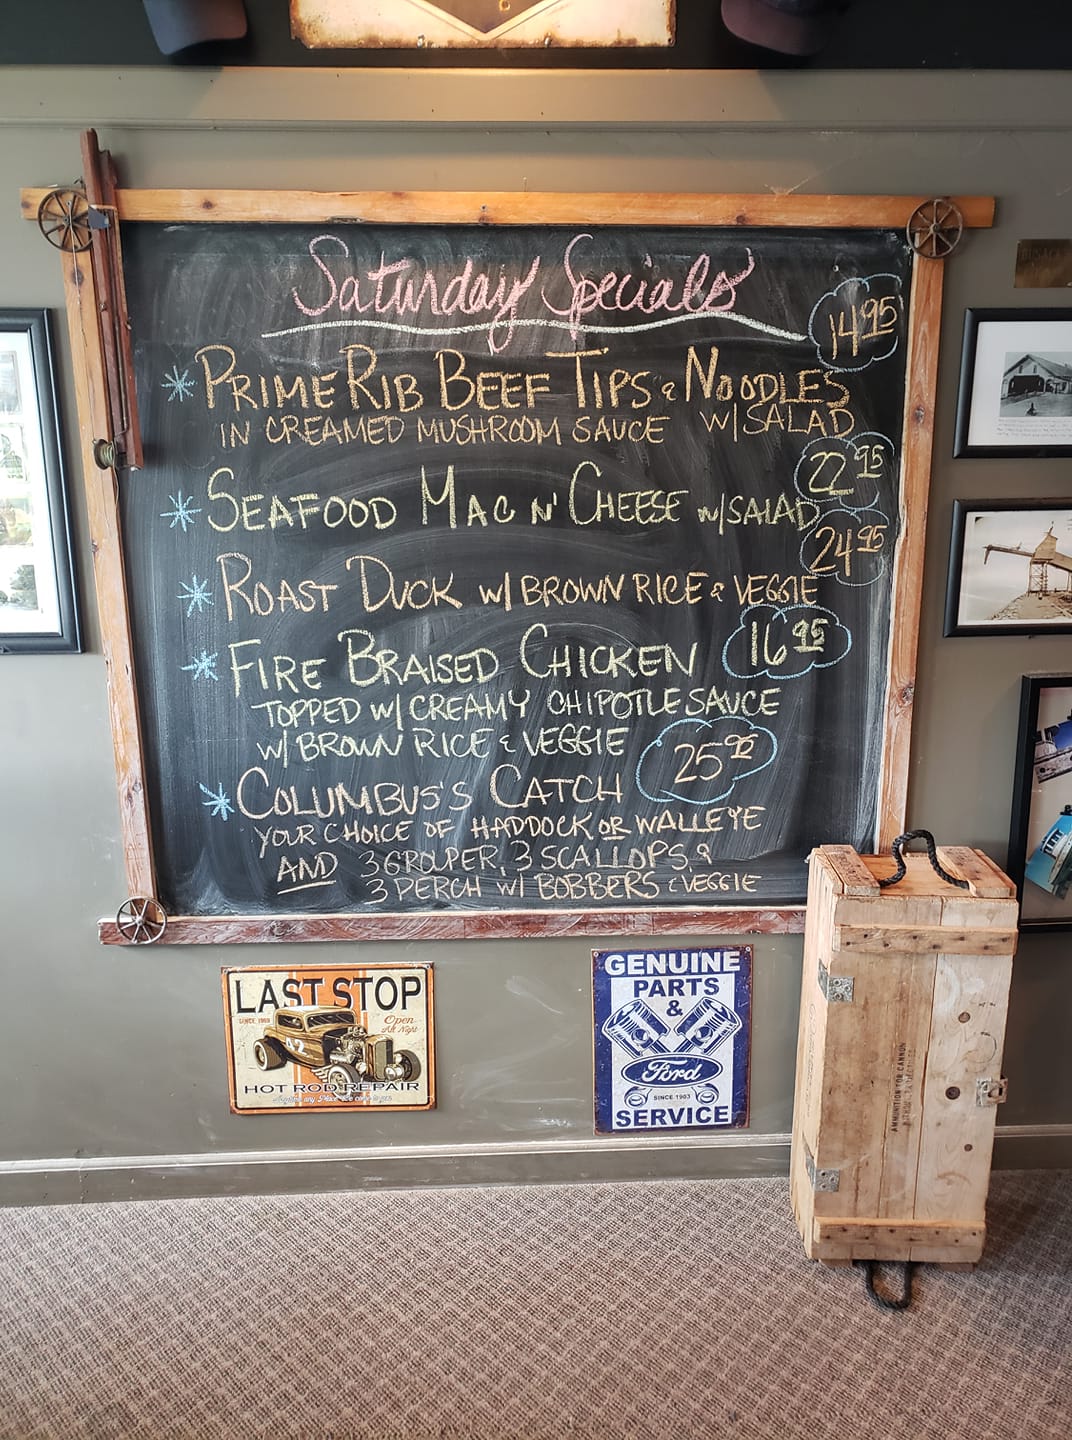 Saturday Specials
14.95
* PRIME RIB BEEF TIPS & NOODLES
IN CREAMED MUSHROOM SAUCE W/ SALAD
22.95
* SEAFOOD MAC N' CHEESE w/ SALAD
24.95
* ROAST DUCK W/ BROWN RICE & VEGGIE
16.95
* FIRE BRAISED CHICKEN
TOPPED W/ CREAMY CHIPOTLE SAUCE
W/ BROWN RICE & VEGGIE
25.95
* COLUMBUS'S CATCH
YOUR CHOICE OF HADDOCK OR WALLEYE
AND 3 GROUPER, 3 SCALLOPS, &
3 PERCH W/ BOBBERS & VEGGIE
LAST STOP
SINCE
Open
All Night
42
HOT ROD REPAIR
GENUINE
PARTS
&
Ford
SINCE 1903
SERVICE
AMMUNITION FOR CANNON